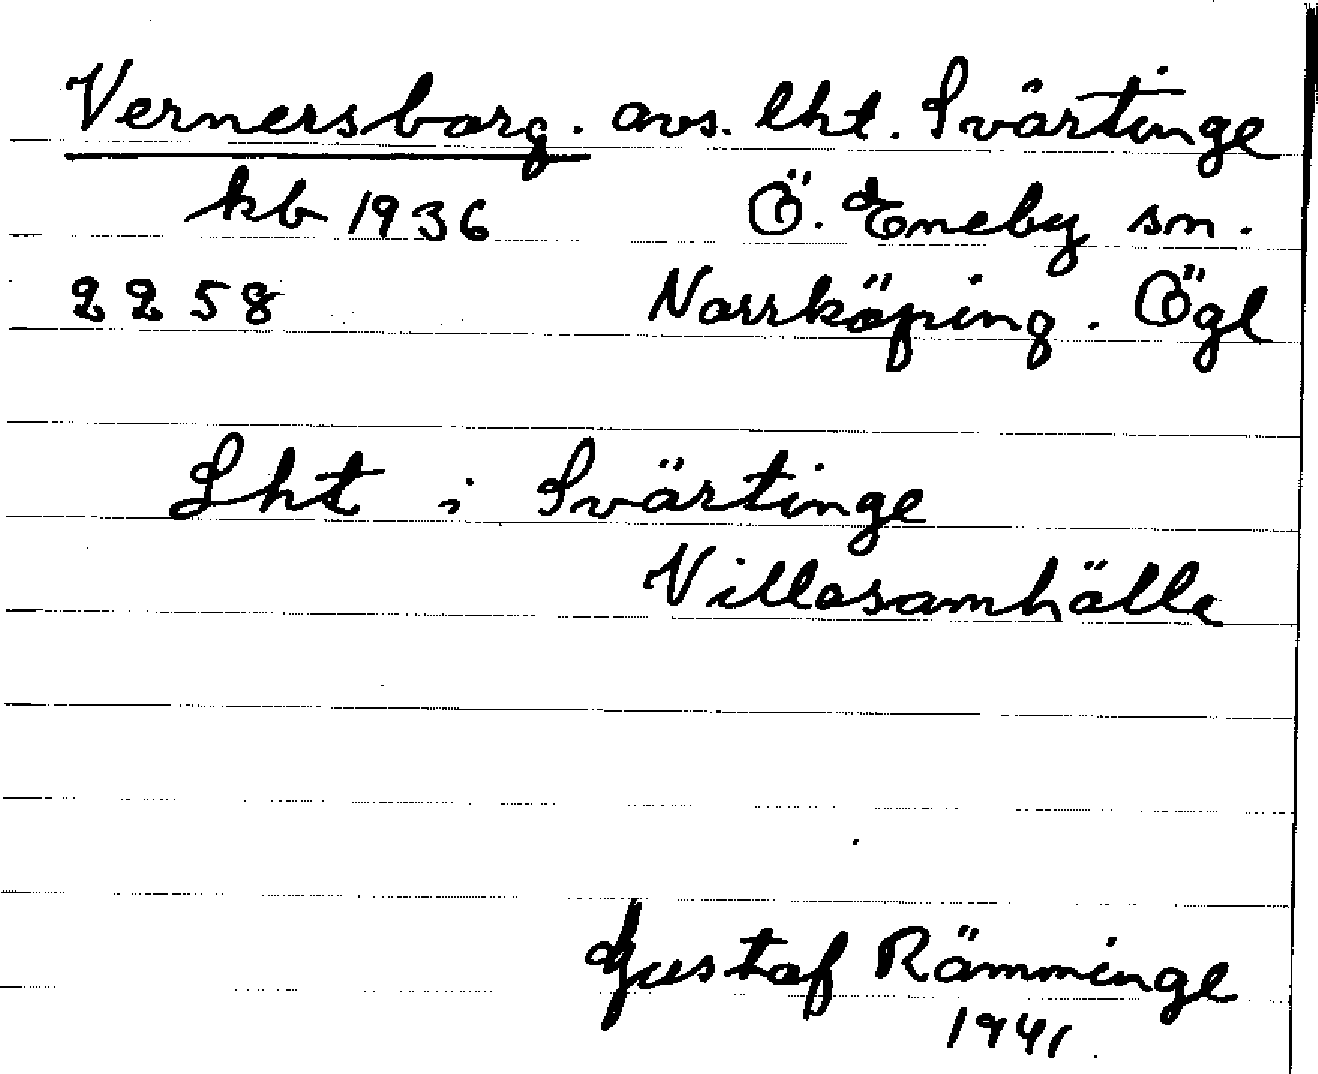 Vernersborg. avs. lht. Svärtinge
kb 1936 Ö. Eneby sn.
2258 Norrköping. Ögl
Lht i Svärtinge
Villasamhälle
Gustaf Rämminge
1941